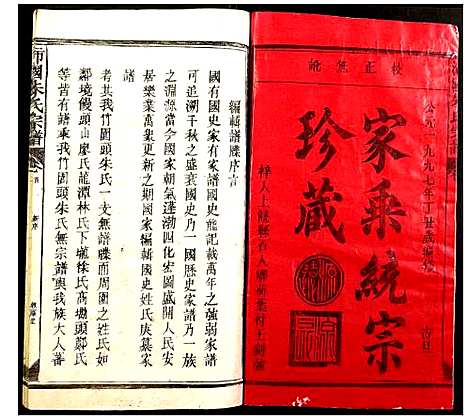 校正無訛
公元一九九七年丁丑歲編修
家乘統宗
珍藏
編輯譜牒序言
國有國史家有家譜國史能記載萬年之強弱家譜
可追溯千秋之盛衰乃一國歷史家譜乃一族
之淵源當今國家朝氣蓬渤四化宏圖盛開人民安
居樂業萬象更新之期國家編輯國史姓氏庚纂家
者我竹園頭朱氏一支無譜牒而周圍之姓氏如
鄰境饅頭山廖氏龍潭林氏下壠徐氏高塘頭鄭氏
等皆有譜乘我竹園頭朱氏無宗譜與我族大人蕃
朱氏宗譜